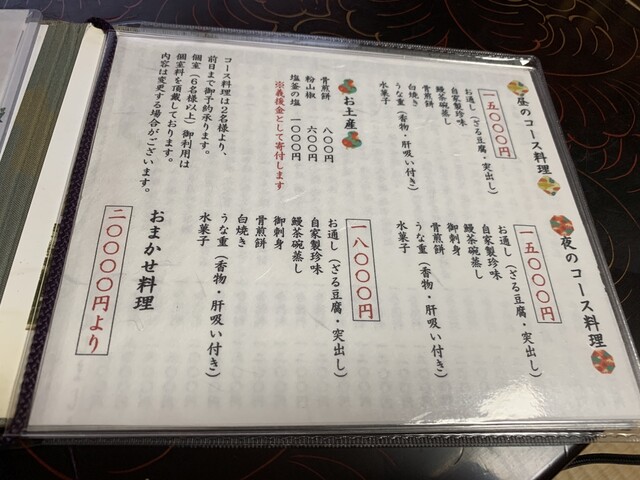 昼のコース料理
一五〇〇〇円
お通し（ざる豆腐・突出し）
自家製珍味
鰻茶碗蒸し
骨煎餅
白焼き
うな重（香物・肝吸い付き）
水菓子
お土産
骨煎餅 八〇〇円
粉山椒 六〇〇円
塩釜の塩 一〇〇〇円
※義援金として寄付します
コース料理は２名様より、
前日まで御予約承ります。
個室（６名様以上）御利用は
個室料を頂戴しております。
内容は変更する場合がございます。
夜のコース料理
一五〇〇〇円
お通し（ざる豆腐・突出し）
自家製珍味
鰻茶碗蒸し
御刺身
骨煎餅
うな重（香物・肝吸い付き）
水菓子
一八〇〇〇円
お通し（ざる豆腐・突出し）
自家製珍味
鰻茶碗蒸し
御刺身
骨煎餅
白焼き
うな重（香物・肝吸い付き）
水菓子
おまかせ料理
二〇〇〇〇円より